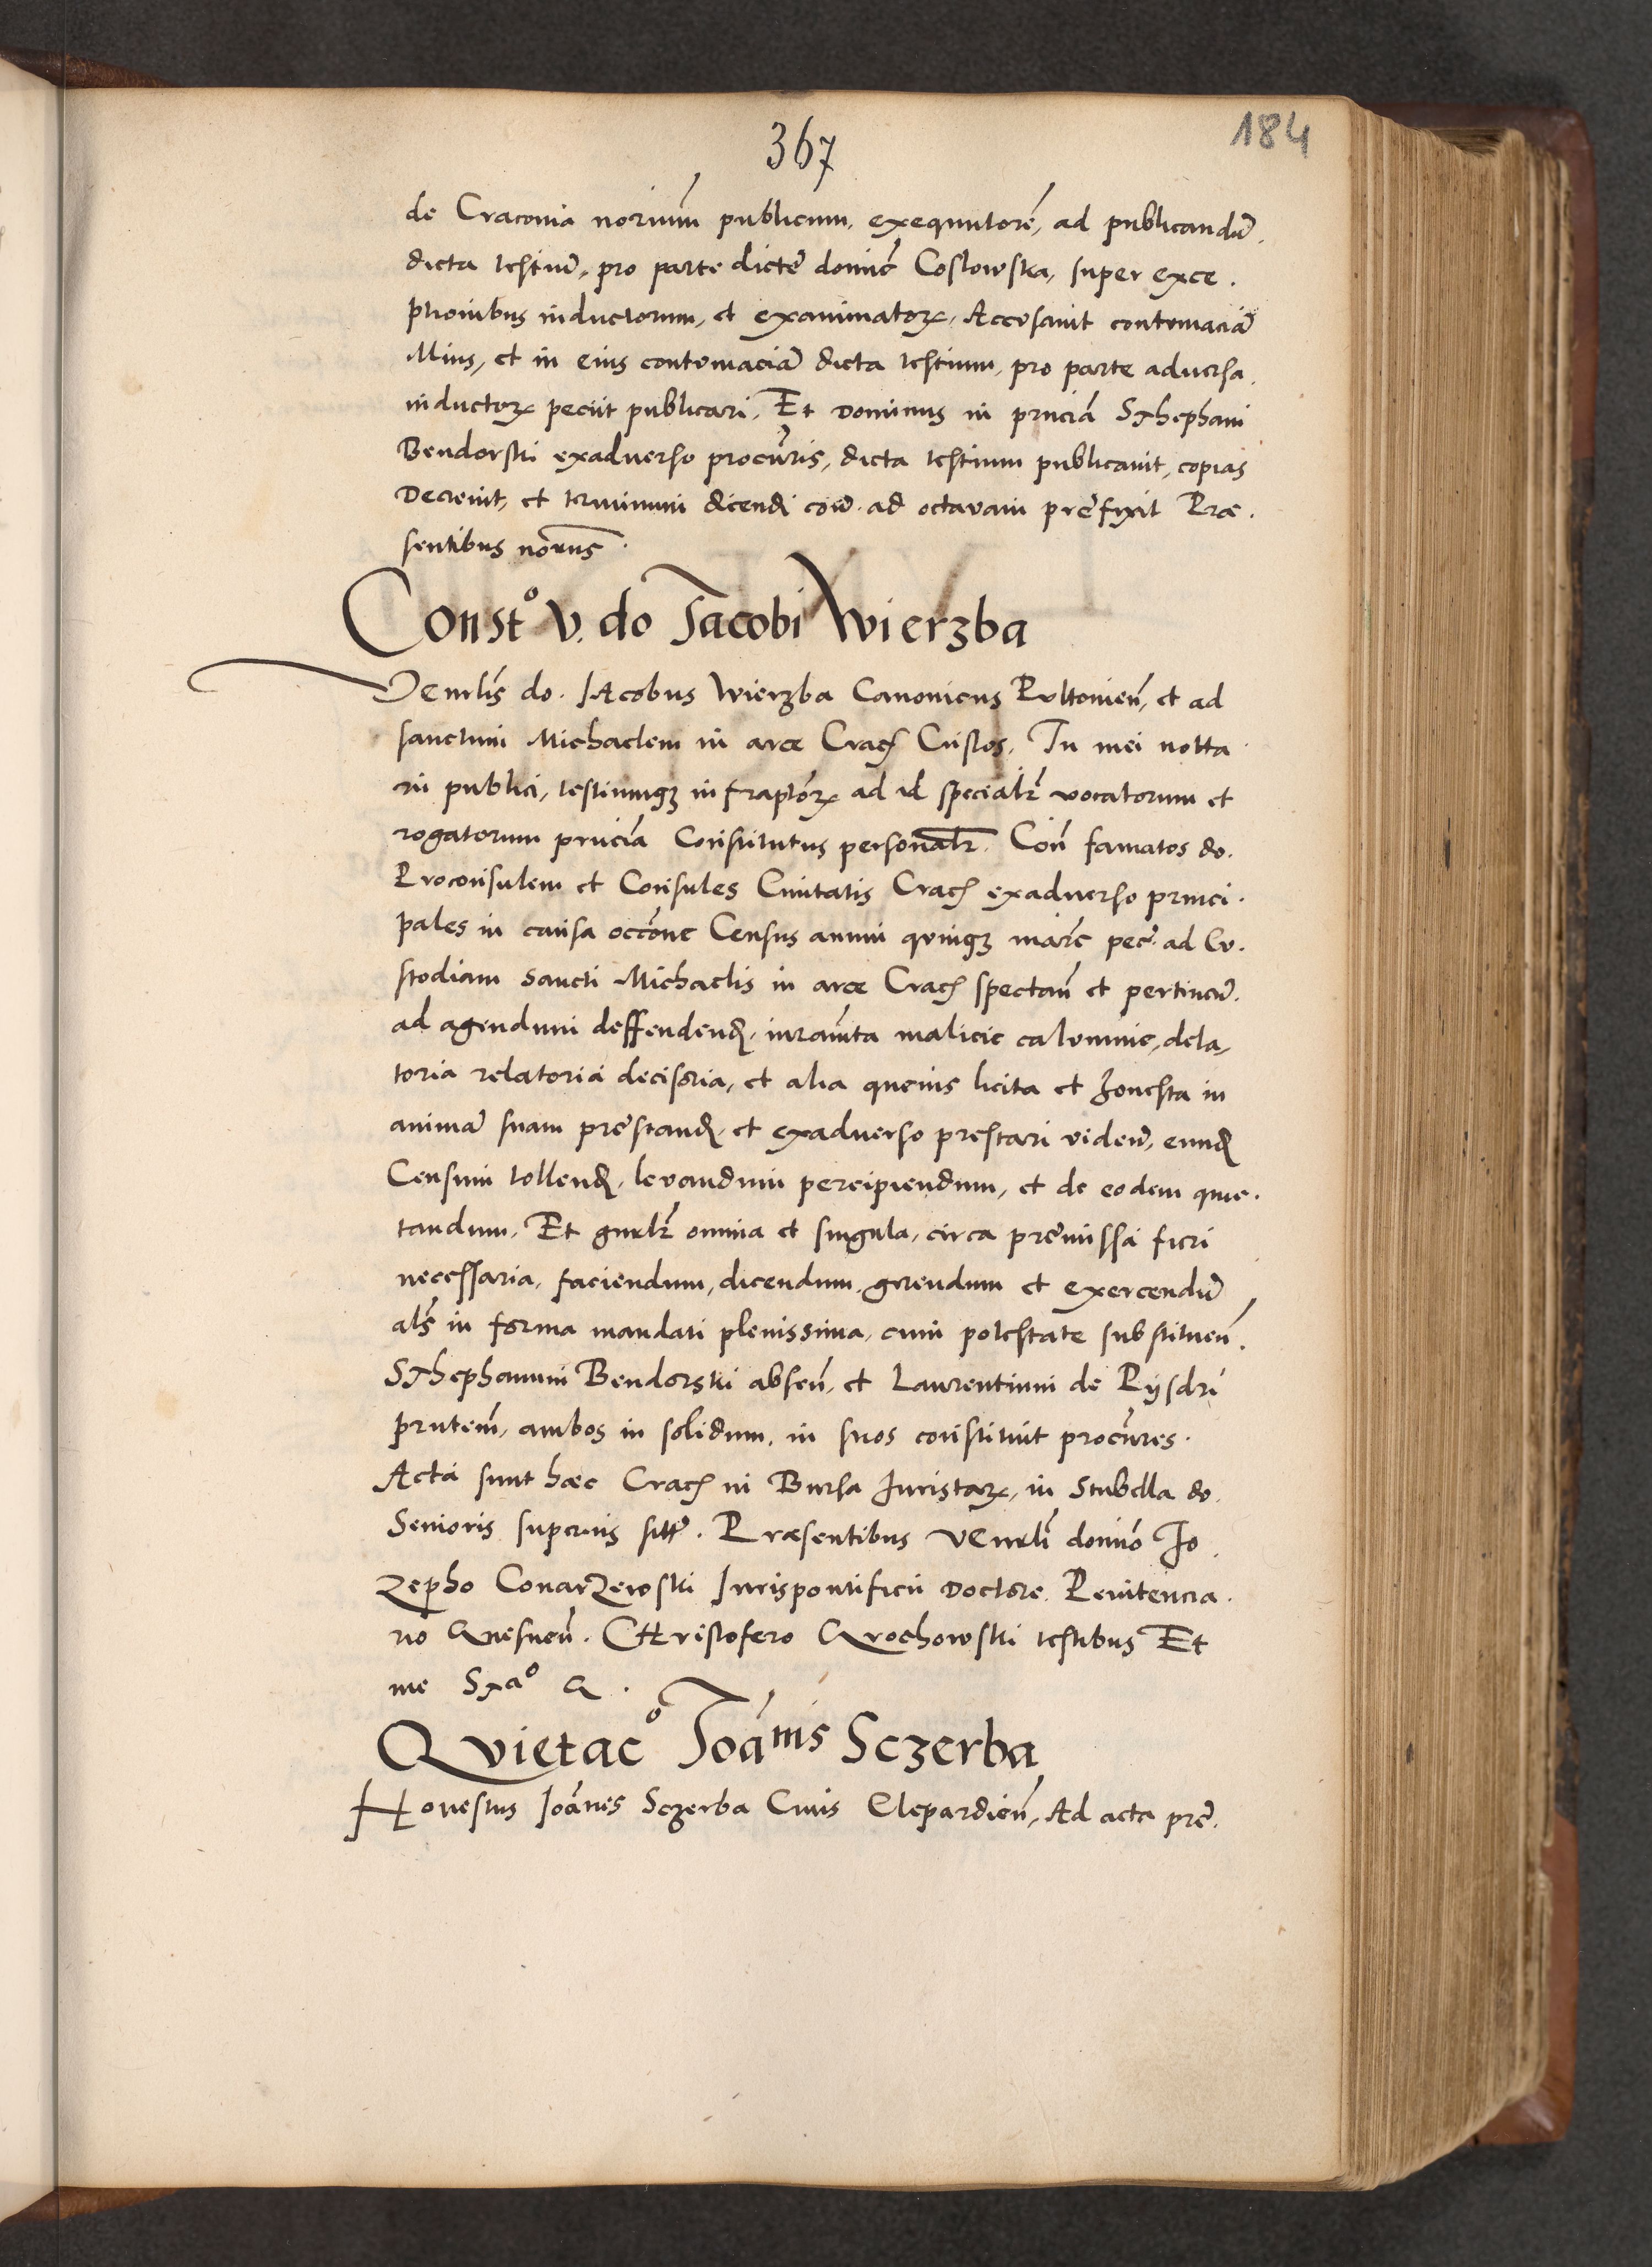 367
184
de Craconia norium̄ publicum, exequutorē, ad publicandū
dicta testiū, pro parte dictę domīę Coslowska, super exce.
ptionibus inductorum, et examinatorꝝ, Accusauit contumaciā
illius, et in eius contumaciā dicta testium, pro parte aduersa
inductorꝝ peciit publicari, Et Dominus in prnciā SThephani
Bendorski exaduerso procūris, dicta testium publicauit, copias
Decreuit, et terminum dicendi coīū. ad octauam pręfixit Præ.
sentibus norijs
Const° V. do Jacobi Wierzba
VEnrlis do. JAcobus Wierzba Canonicus Pultouień, et ad
sanctum Michaelem in arce Crac̄ Custos, In mei notta
rii publici, testiumqȝ infraptōrꝝ ad id specialr̄ vocatorum et
rogatorum prnciā Constitutus personalr̄. Coñ famatos do.
Proconsulem et Consules Ciuitatis Crac̄ exaduerso princi.
pales in causa occōne Census annui quinqȝ marc̄ pec̄. ad Cu.
stodiam sancti Michaelis in arce Crac̄ spectañ et pertineñ.
ad agendum deffendend̄. iuramta malicie calumnie, dela,
toria relatoria decisoria, et alia queuis licita et honesta in
animā suam pręstand̄. et exaduerso prestari videñ, eund̄
Censum tollend̄. leuandum percipiendum, et de eodem quie.
tandum, Et gnrlr̄ omnia et singula, circa pręmissa fieri
necessaria, faciendum, dicendum, gerendum et exercendū
als̄ in forma mandati plenissima, cum potestate substitueñ.
SThephanum Bendorski abseñ, et Laurentium de Pijsdri
prntem̄, ambos in solidum, in suos constituit procūres.
Acta sunt hæc Crac̄ in Bursa Juristarꝝ, in Stubella do.
Senioris superius sitt̄. Præsentibus VEnrli domīo Jo
Zepho ConarZewski Jurispontificii Doctore, Penitencia.
rio Gnesneñ. CHristofero Grochowski testibus Et
me Sxa° G.
QVietac° Joānnis Sczerba
HOnestus Joānes Sczerba Ciuis Clepardień, Ad acta prę.